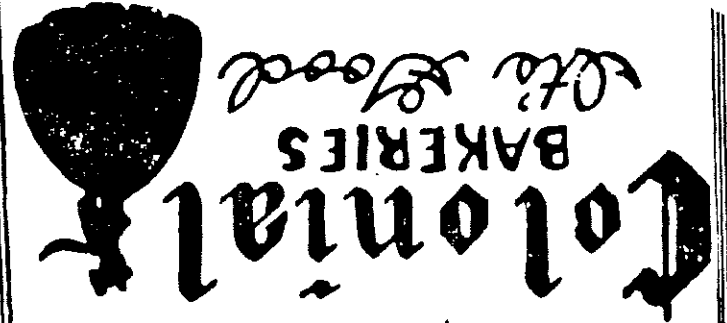 Colonial
BAKERIES
It's Good